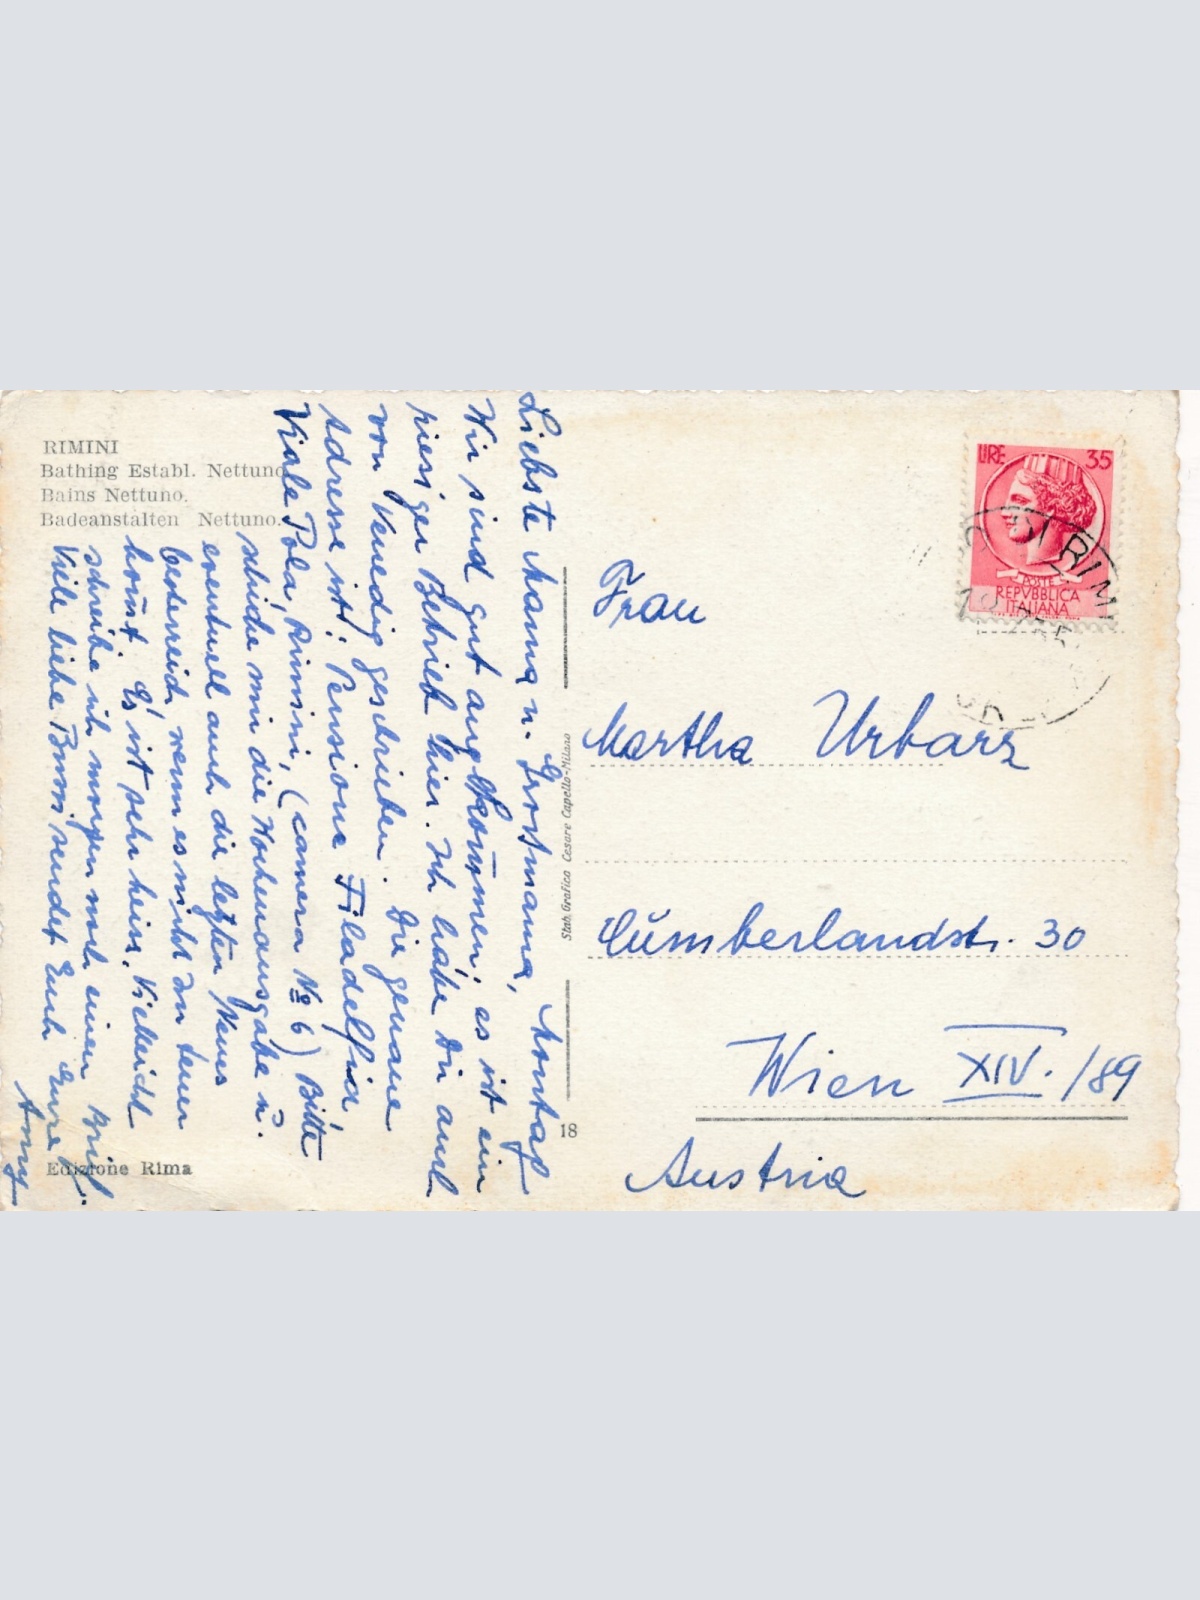 RIMINI
Bathing Establ. Nettuno
Bains Nettuno.
Badeanstalten Nettuno.
Liebste Mama u. Grossmama, Montag
Wir sind gut angekommen; es ist ein
riesiger Betrieb hier. Ich habe Dir auch
von Venedig geschrieben. Die genaue
Adresse ist: Pensione Filadelfia,
Viale Pola, Rimini, (camera № 6) Bitte
schicke mir die Wochenausgabe u.
eventuell auch die letzten Neues
Österreich wenn es nicht zu teuer
kommt. Es ist sehr heiss. Vielleicht
schreibe ich morgen noch einen Brief.
Viele liebe Bussi sendet Euch Eure
Edizione Rima
Stab. Grafica Cesare Capello-Milano
18
LIRE 35
POSTE
REPVBBLICA
ITALIANA
RIMI
Frau
Martha Urbarz
Cumberlandstr. 30
Wien XIV. /89
Austria